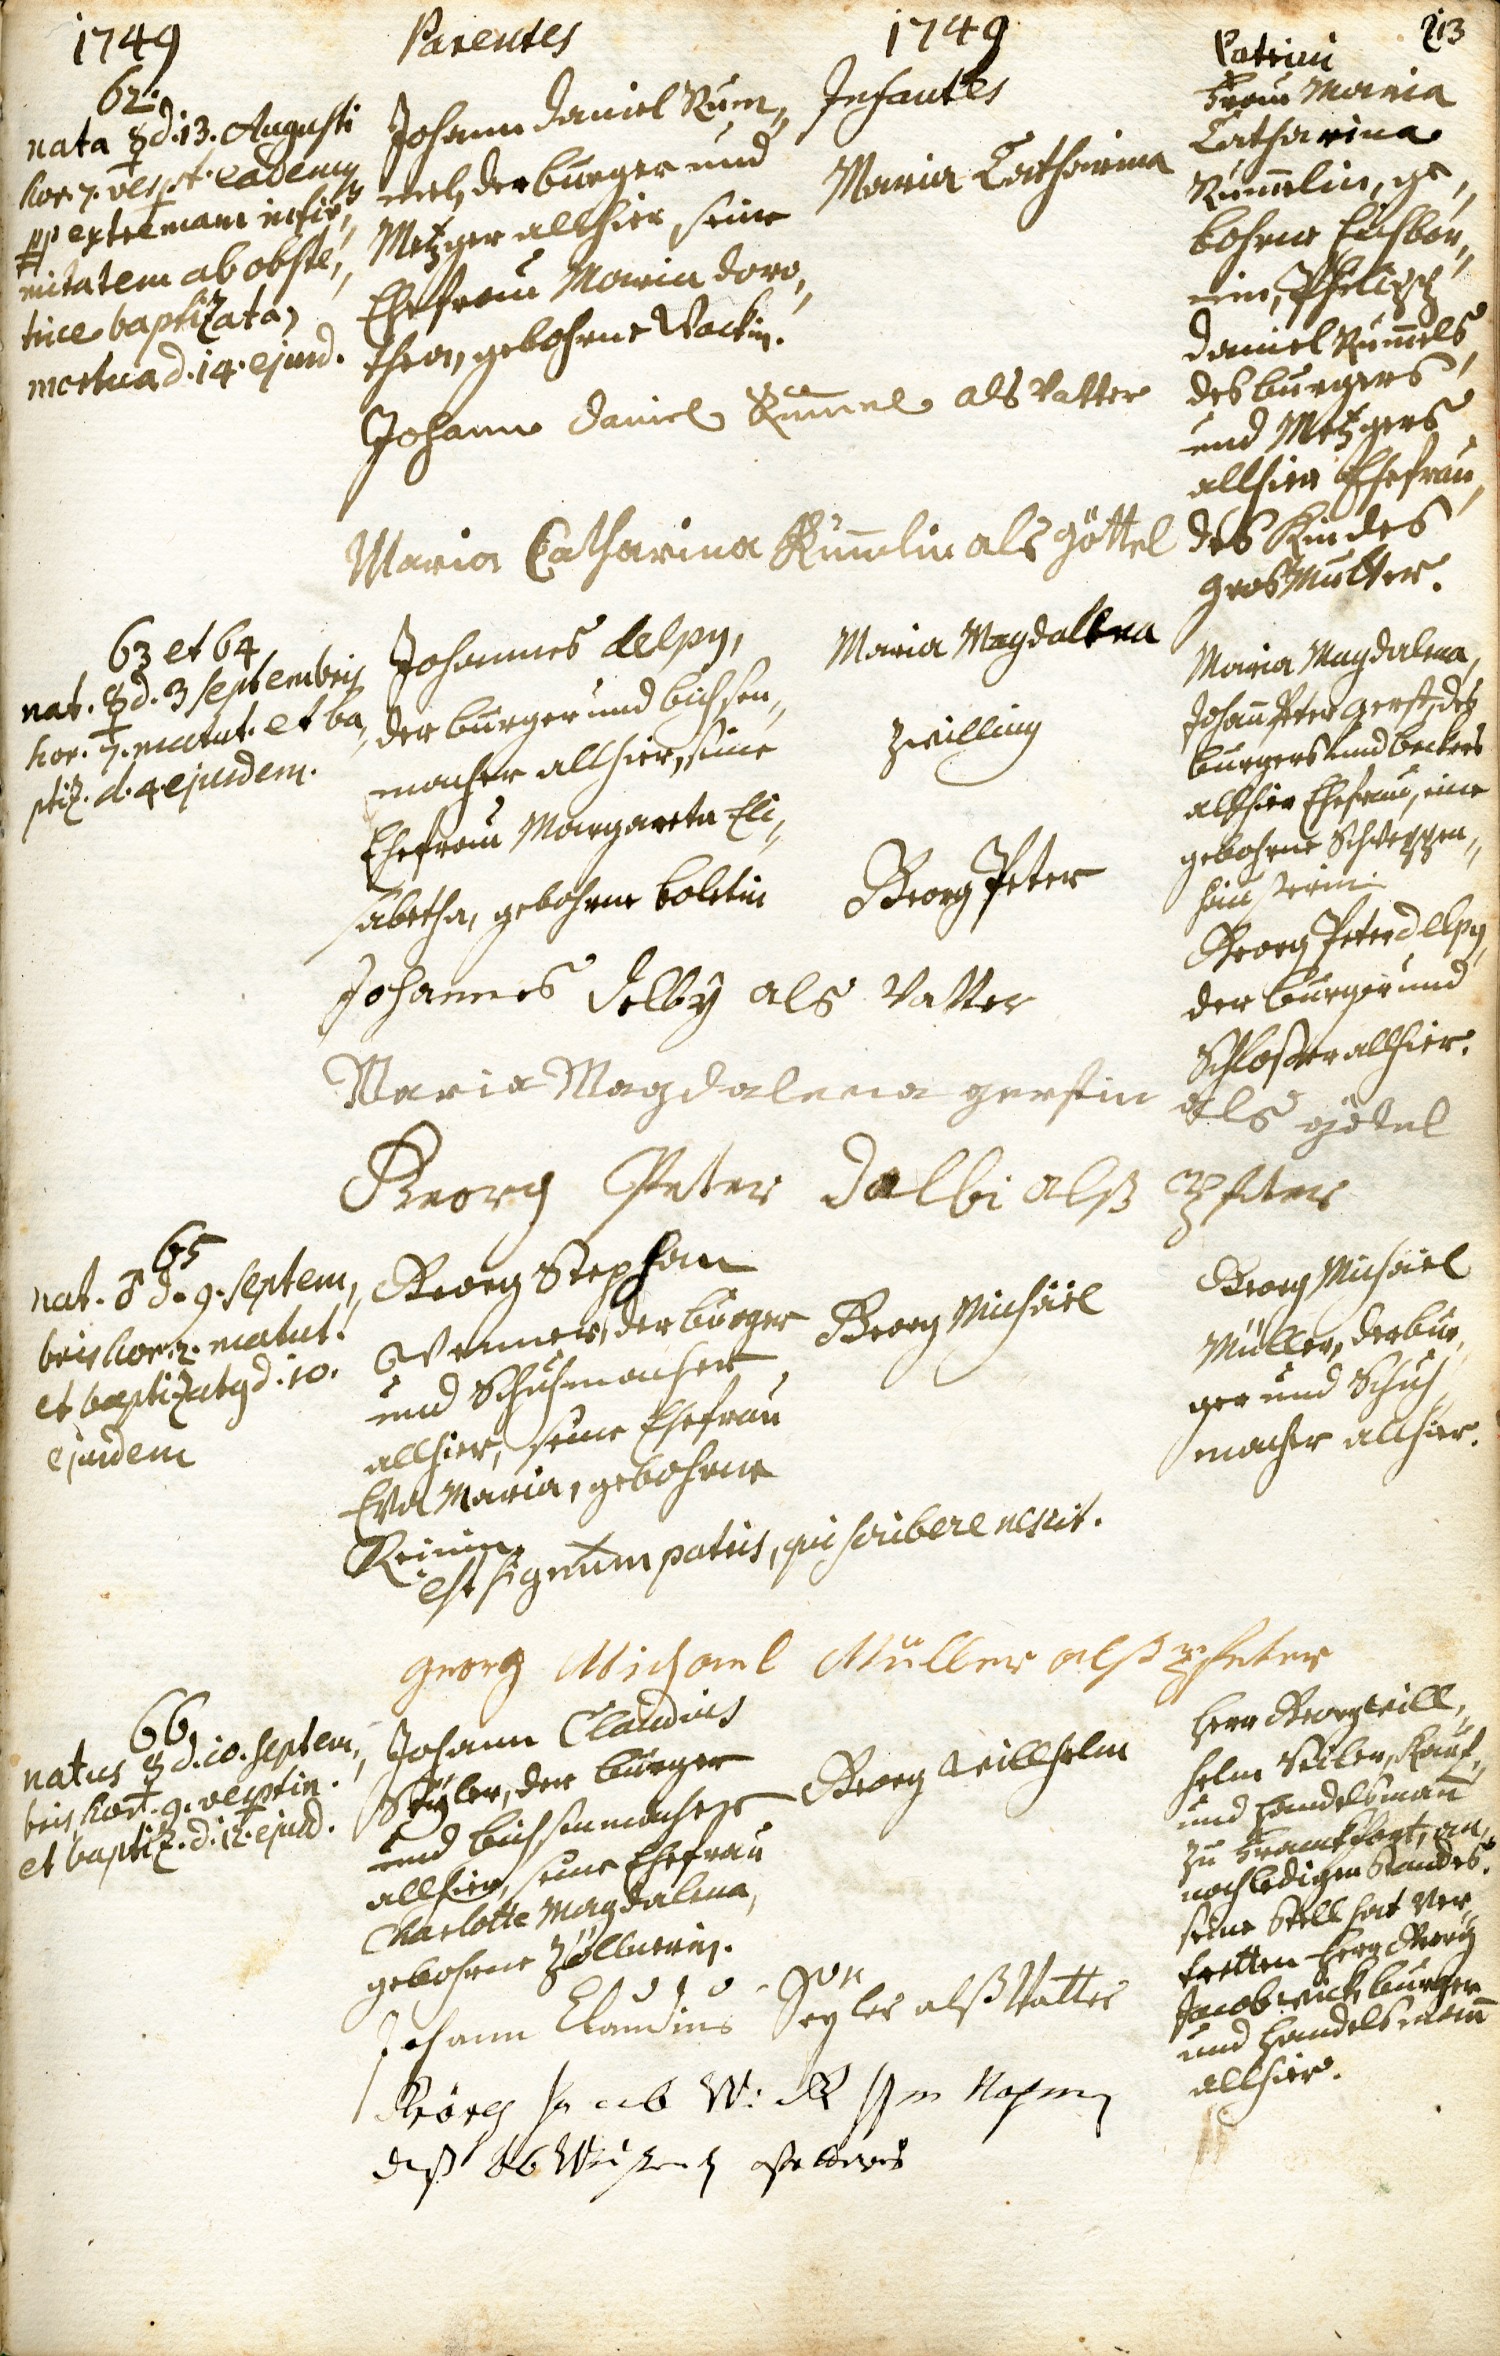 1749
Parentes
1749
Patrini
213
Infantes
62.
nata ☿ d. 13. Augusti
hor. 7. vespt. eadem
pp extremam infir,,
mitatem ab obste,,
trice baptizata,
mortua d. 14. ejusd.
Johann Daniel Rum,,
mel, der burger und
Metzger allhier, seine
Ehefrau Maria Doro,,
thea, gebohrne Wackin.
Maria Catharina
Frau Maria
Catharina
Rummelin, ge,,
bohrne
Philipp
Daniel Rummels
des burgers
und Metzgers
allhier Ehefrau,
des Kindes
gros Mutter.
Johann Daniel Rummel als Vatter
Maria Catharina Rummlin als göttel
63 et 64
nat. ☿ d. 3 septembris
hor. 7. matut. et ba,,
ptiz. d. 4 ejusdem.
Johannes delpy,
der burger und bichsen,,
macher allhier, seine
Ehefrau Margareta Eli,,
sabetha, gebohrne boletin
Maria Magdalena
Zwilling
Georg Peter
Maria Magdalena,
Johann Peter Gerst, des
burgers und beckers
allhier Ehefrau, eine
gebohrne Schweppen,,
häuserin.
Georg Peter delpy,
der burger und
Schlosser allhier.
Johannes delby als Vatter
Maria Magdalena gerstin als gödel
Georg Peter dalbi alß Pfeter
65
nat. ♂ d. 9. septem,,
bris hor. 2. matut.
et baptizatg d. 10.
ejusdem
Georg Stephan
Wenner, der burger
und Schuhmacher
allhier, seine Ehefrau
Eva Maria, gebohrne
Reinin.
Georg Michäel
Georg Michäel
Müller, der bur,,
ger und Schuh,,
macher allhier.
+
est signum patris, qui scribere nescit.
georg Michael Müller alß Pfeter
66
natus ☿ d. 10. septem,,
bris hor. 9. vesptin.
et baptiz. d. 12. ejusd.
Johann Claudius
Seyler, der burger
und bichsenmacher
allhier, seine Ehefrau
Charlotte Magdalena,
gebohrne Zöllnerin.
Georg Willhelm
Herr Georg Will,,
helm Kauf,,
und handelsmann
zu Franckfort, an,,
noch ledigen Standes.
seine Stell hat ver,,
tretten Herr Georg
Jacob Wick, burger
und handelsmann
allhier.
Johann Claudius Seyler alß Vatter
Görg Jacob Wick im Nahmen
deß